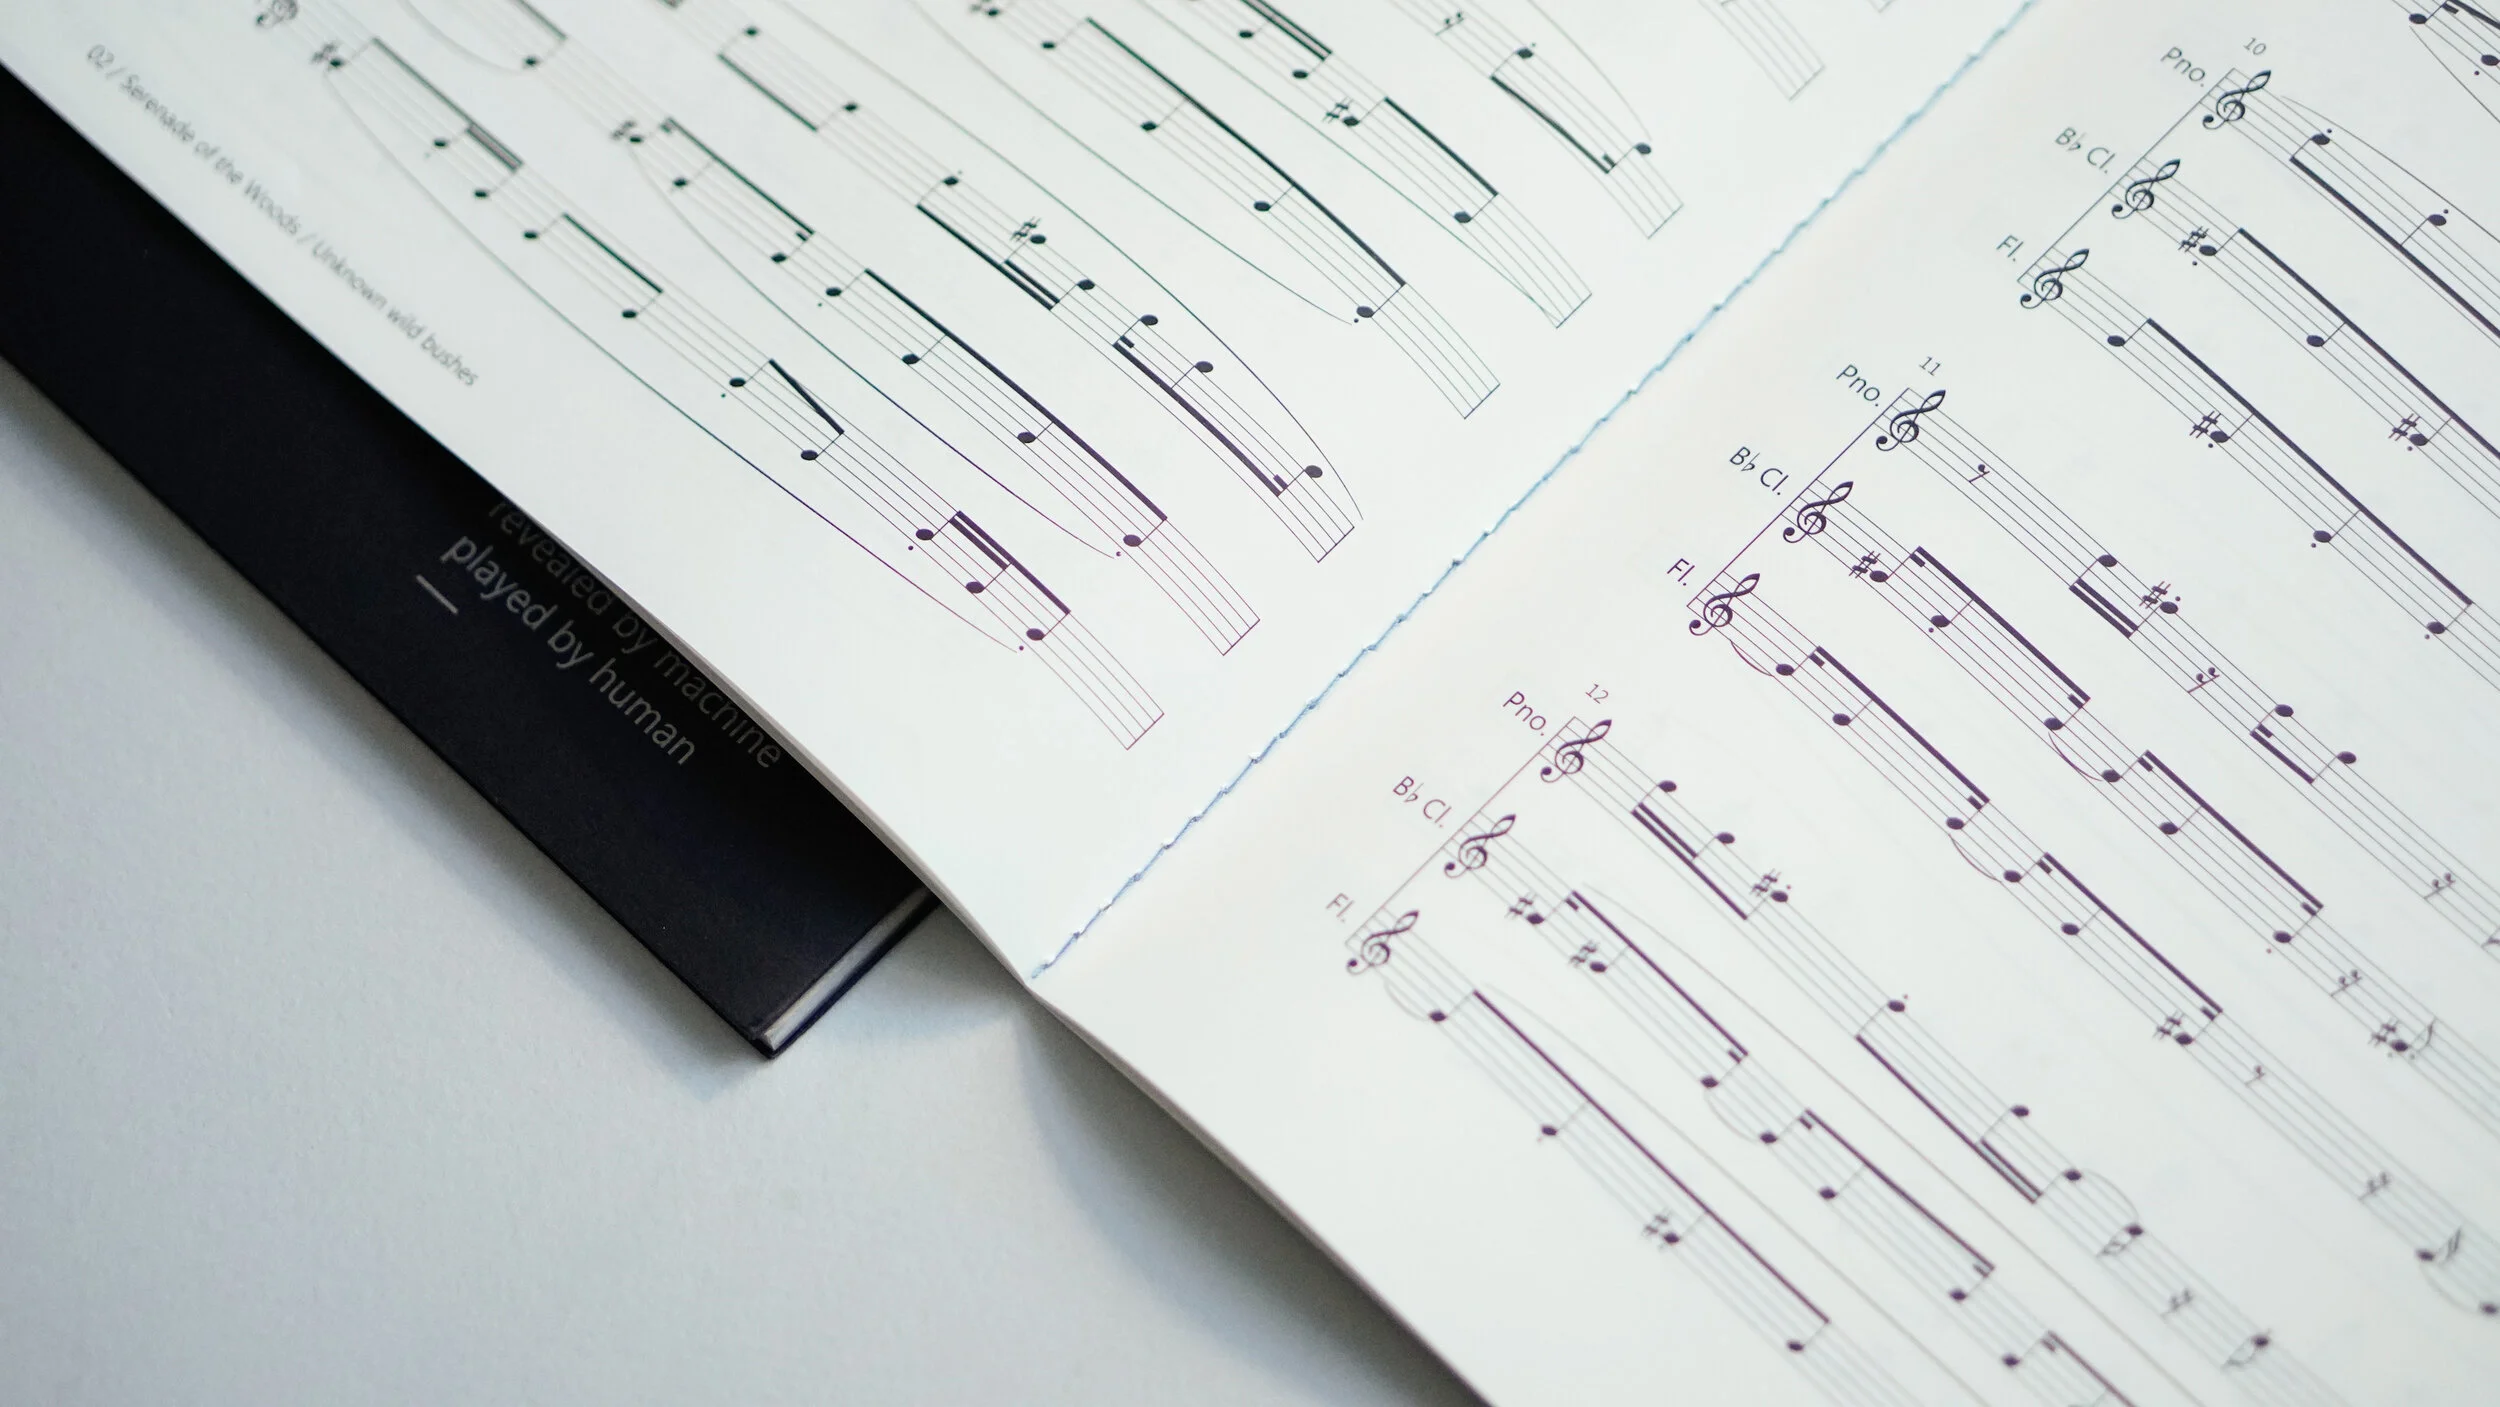 02 / Serenade of the Woods / Unknown wild bushes
revealed by machine
played by human
—
10
Pno.
B♭ Cl.
Fl.
11
Pno.
B♭ Cl.
Fl.
12
Pno.
B♭ Cl.
Fl.